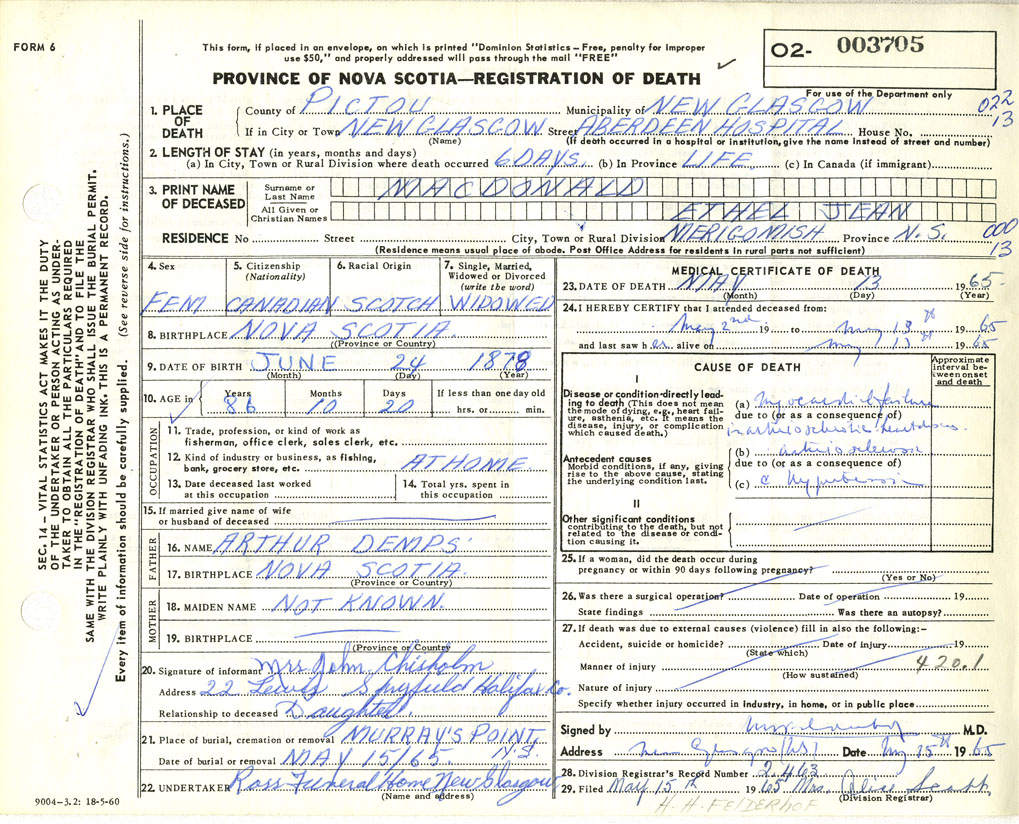 FORM 6
This form, if placed in an envelope, on which is printed "Dominion Statistics – Free, penalty for improper
use $50," and properly addressed will pass through the mail "FREE"
PROVINCE OF NOVA SCOTIA—REGISTRATION OF DEATH
O2- 003705
For use of the Department only
022
13
1. PLACE OF DEATH
County of PICTOU Municipality of NEW GLASGOW
If in City or Town NEW GLASGOW Street ABERDEEN HOSPITAL House No.
(Name) (If death occurred in a hospital or institution, give the name instead of street and number)
2. LENGTH OF STAY (in years, months and days)
(a) In City, Town or Rural Division where death occurred 6 DAYS. (b) In Province LIFE (c) In Canada (if immigrant)
3. PRINT NAME OF DECEASED
Surname or Last Name MACDONALD
All Given or Christian Names ETHEL JEAN
RESIDENCE No Street City, Town or Rural Division MERIGOMISH Province N.S.
000
13
(Residence means usual place of abode. Post Office Address for residents in rural parts not sufficient)
4. Sex FEM
5. Citizenship (Nationality) CANADIAN
6. Racial Origin SCOTCH
7. Single, Married, Widowed or Divorced (write the word) WIDOWED
8. BIRTHPLACE NOVA SCOTIA
(Province or Country)
9. DATE OF BIRTH JUNE 24 1878
(Month) (Day) (Year)
10. AGE in Years 86 Months 10 Days 20 If less than one day old hrs. or min.
OCCUPATION
11. Trade, profession, or kind of work as
fisherman, office clerk, sales clerk, etc.
12. Kind of industry or business, as fishing,
bank, grocery store, etc. AT HOME
13. Date deceased last worked
at this occupation
14. Total yrs. spent in
this occupation
15. If married give name of wife
or husband of deceased
FATHER
16. NAME ARTHUR DEMPS
17. BIRTHPLACE NOVA SCOTIA
(Province or Country)
MOTHER
18. MAIDEN NAME NOT KNOWN.
19. BIRTHPLACE
(Province or Country)
20. Signature of informant Mrs John Chisholm
Address 22 Lewis Halifax Co.
Relationship to deceased Daughter
21. Place of burial, cremation or removal MURRAY'S POINT, N.S.
Date of burial or removal MAY 15/65
22. UNDERTAKER Ross Funeral Home New Glasgow
(Name and address)
9004–3.2: 18-5-60
MEDICAL CERTIFICATE OF DEATH
23. DATE OF DEATH MAY 13 1965
(Month) (Day) (Year)
24. I HEREBY CERTIFY that I attended deceased from:
May 2nd 19 to May 13th 1965
and last saw her alive on May 13th 1965
CAUSE OF DEATH
Approximate interval between onset and death
I
Disease or condition directly leading
to death (This does not mean
the mode of dying, e.g., heart failure,
asthenia, etc. It means the
disease, injury, or complication
which caused death.)
(a) Myocardial failure
due to (or as a consequence of)
Antecedent causes
Morbid conditions, if any, giving
rise to the above cause, stating
the underlying condition last.
(b)
due to (or as a consequence of)
(c)
II
Other significant conditions
contributing to the death, but not
related to the disease or condition
causing it.
25. If a woman, did the death occur during
pregnancy or within 90 days following pregnancy?
(Yes or No)
26. Was there a surgical operation? Date of operation 19
State findings Was there an autopsy?
27. If death was due to external causes (violence) fill in also the following:–
Accident, suicide or homicide? Date of injury 19
(State which)
Manner of injury 420.1
(How sustained)
Nature of injury
Specify whether injury occurred in industry, in home, or in public place
Signed by M.D.
Address New Glasgow NS Date May 15th 1965
28. Division Registrar's Record Number 2463
29. Filed May 15th 1965 Mrs. Alice Scott
(Division Registrar)
H. H. FELDERHOF
SEC. 14 – VITAL STATISTICS ACT MAKES IT THE DUTY
OF THE UNDERTAKER OR PERSON ACTING AS UNDERTAKER
TO OBTAIN ALL THE PARTICULARS REQUIRED
IN THE "REGISTRATION OF DEATH" AND TO FILE THE
SAME WITH THE DIVISION REGISTRAR WHO SHALL ISSUE THE BURIAL PERMIT.
WRITE PLAINLY WITH UNFADING INK. THIS IS A PERMANENT RECORD.
Every item of information should be carefully supplied. (See reverse side for instructions.)